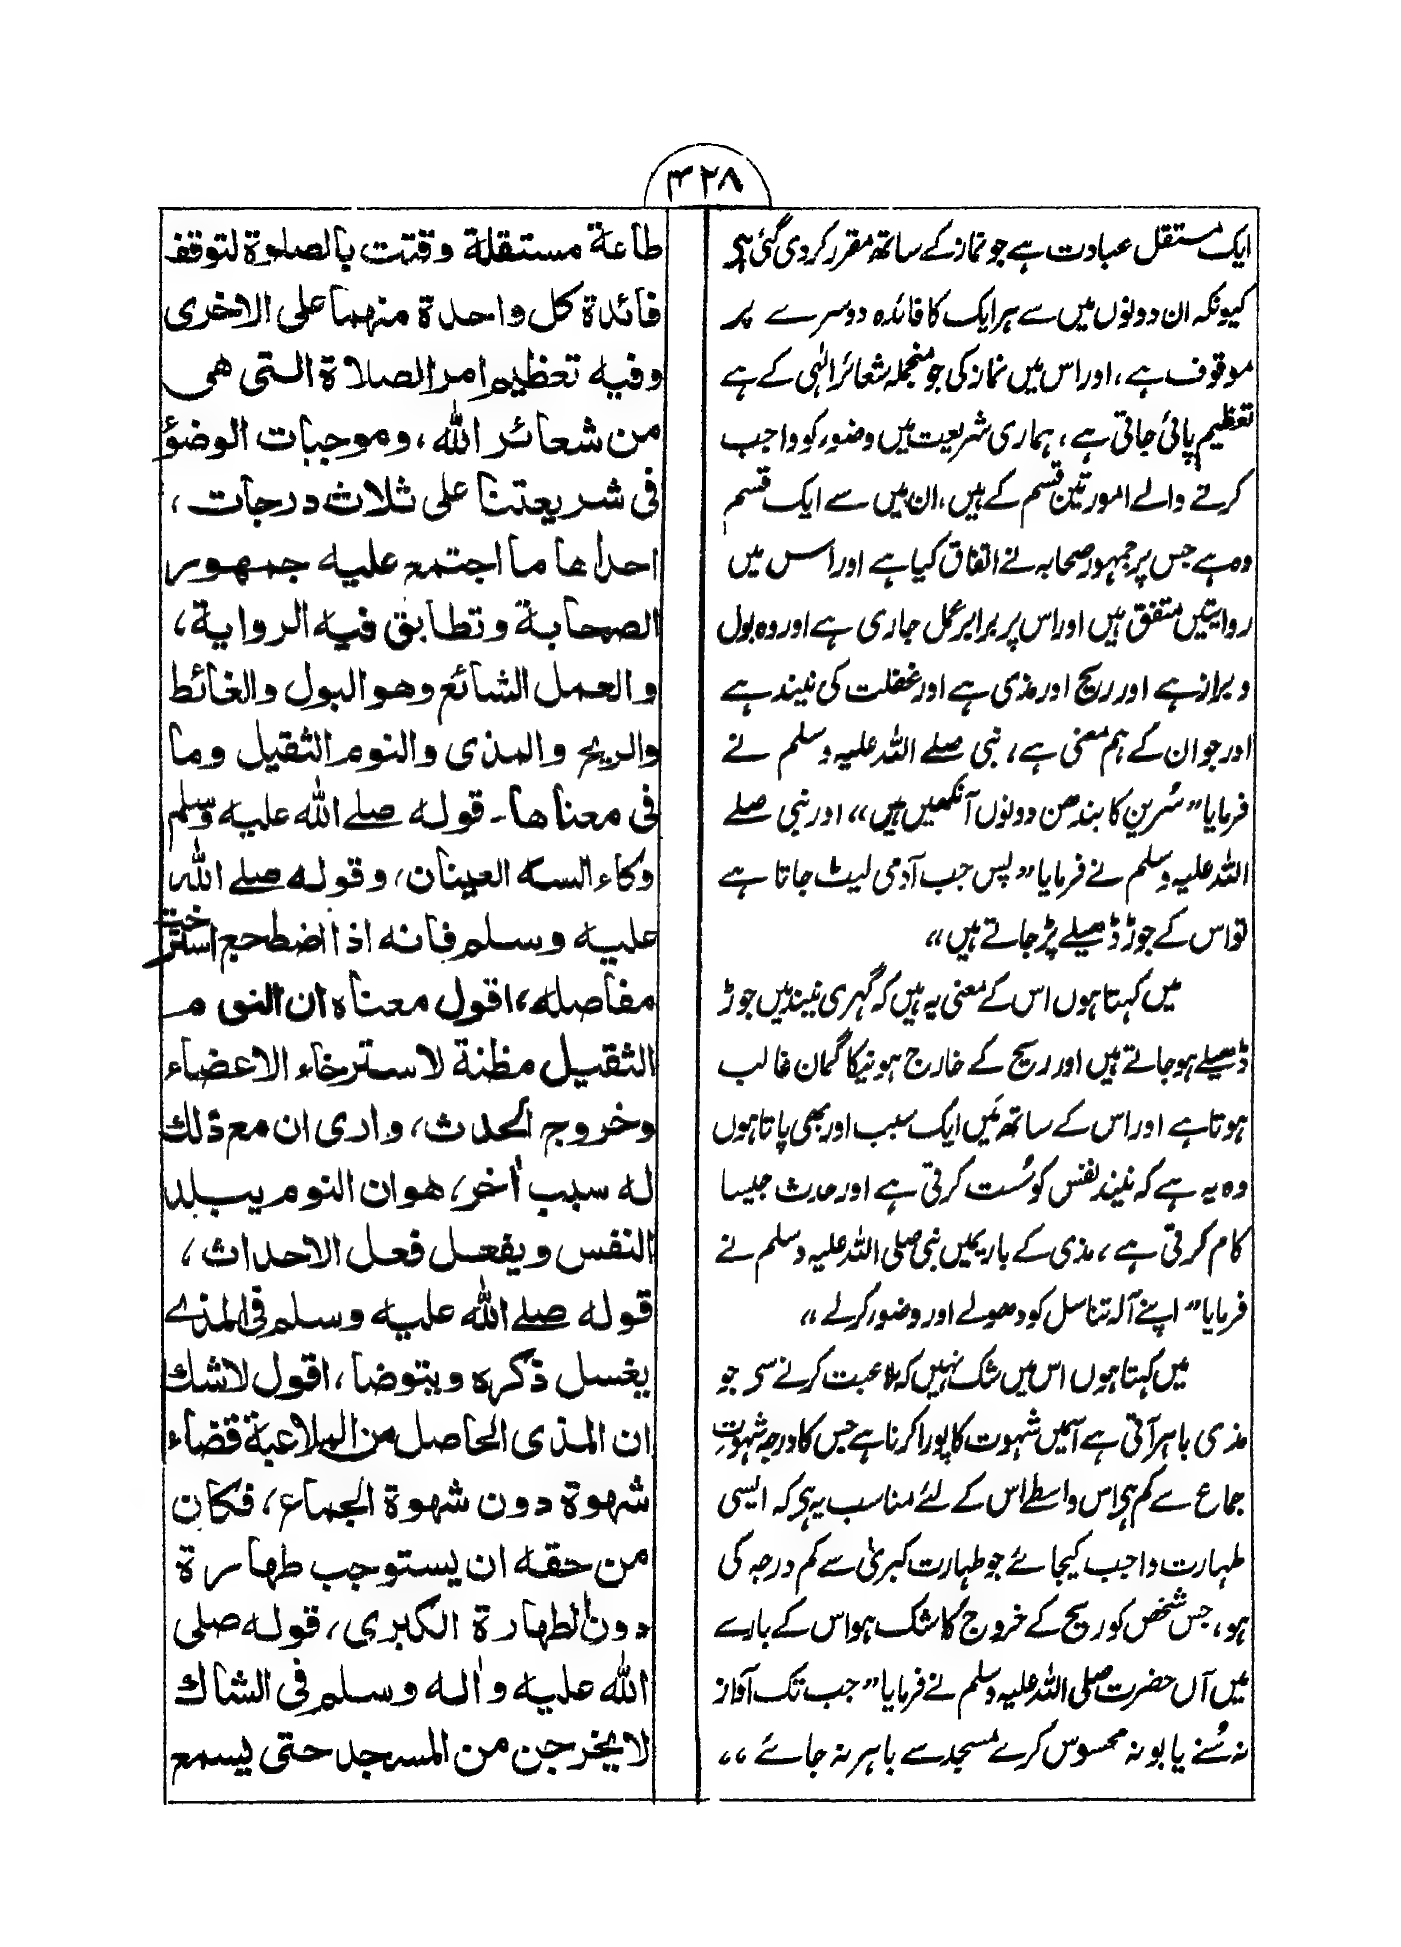 ۴۲۸
ایک مستقل عبادت ہے جو نماز کے ساتھ مقرر کردی گئی ہے
کیونکہ ان دونوں میں سے ہر ایک کا فائدہ دوسرے پر
موقوف ہے، اور اس میں نماز کی جو منجملہ شعائر الٰہی کے ہے
تعظیم پائی جاتی ہے، ہماری شریعت میں وضور کو واجب
کرنے والے امور تین قسم کے ہیں، ان میں سے ایک قسم
وہ ہے جس پر جمہور صحابہ نے اتفاق کیا ہے اور اس میں
روایتیں متفق ہیں اور اس پر برابر عمل جاری ہے اور وہ بول
و براز ہے اور ریح اور مذی ہے اور غفلت کی نیند ہے
اور جو ان کے ہم معنی ہے، نبی صلے اللہ علیہ وسلم نے
فرمایا” سُرین کا بندھن دونوں آنکھیں ہیں“ اور نبی صلے
اللہ علیہ وسلم نے فرمایا” پس جب آدمی لیٹ جاتا ہے
تو اس کے جوڑ ڈھیلے پڑجاتے ہیں“
میں کہتا ہوں اس کے معنی یہ ہیں کہ گہری نیند میں جوڑ
ڈھیلے ہوجاتے ہیں اور ریح کے خارج ہونیکا گمان غالب
ہوتا ہے اور اس کے ساتھ مَیں ایک سبب اور بھی پاتا ہوں
وہ یہ ہے کہ نیند نفس کو سُست کرتی ہے اور حدث جیسا
کام کرتی ہے، مذی کے بارہیں نبی صلی اللہ علیہ وسلم نے
فرمایا” اپنے آلہ تناسل کو دھولے اور وضور کرلے“
میں کہتا ہوں اس میں شک نہیں کہ ملاعبت کرنے سے جو
مذی باہر آتی ہے آمیں شہوت کا پورا کرنا ہے جس کا درجہ شہوتِ
جماع سے کم ہے اس واسطے اس کے لئے مناسب یہ ہے کہ ایسی
طہارت واجب کیجائے جو طہارت کبریٰ سے کم درجہ کی
ہو، جس شخص کو ریح کے خروج کا شک ہو اس کے بارے
میں آں حضرت صلی اللہ علیہ وسلم نے فرمایا” جب تک آواز
نہ سُنے یا بو نہ محسوس کرے مسجد سے باہر نہ جائے“
طاعة مستقلة وقتت بالصلوة لتوقف
فائدة كل واحدة منهما على الاخرى
وفيه تعظيم امر الصلاة التى هى
من شعائر الله، وموجبات الوضؤ
فى شريعتنا على ثلاث درجات،
احداها ما اجتمع عليه جمهور
الصحابة وتطابق فيه الرواية،
والعمل الشائع وهو البول والغائط
والريح والمذى والنوم الثقيل وما
فى معناها۔ قوله صلے الله عليه وسلم
وكاء السه العينان، وقوله صلے الله
عليه وسلم فانه اذا اضطجع استرخت
مفاصله، اقول معناه ان النوم
الثقيل مظنة لاسترخاء الاعضاء
وخروج الحدث، وارى ان مع ذلك
له سبب أخر، هو ان النوم يبلد
النفس ويفعل فعل الاحداث،
قوله صلے الله عليه وسلم فى المذے
يغسل ذكره ويتوضا، اقول لاشك
ان المذى الحاصل من الملاعبة قضاء
شهوة دون شهوة الجماع، فكان
من حقه ان يستوجب طهارة
دون الطهارة الكبرى، قوله صلى
الله عليه واٰله وسلم فى الشاك
لا يخرجن من المسجد حتى يسمع